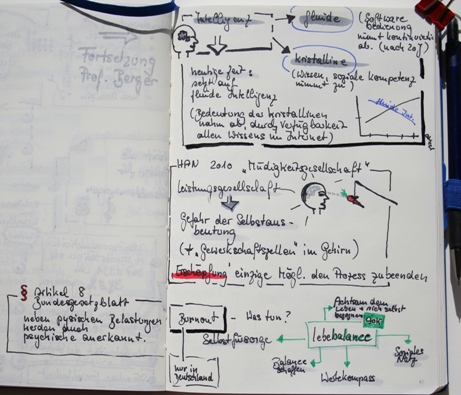 Fortsetzung
Prof. Berger
§ Artikel 8
Bundesgesetzblatt
neben pysischen Belastungen
werden auch
psychische anerkannt.
Intelligenz
fluide
(Software
bedienung
nimmt kontinuierlich
ab. (nach 20J)
kristalline
(Wissen, soziale Kompetenz
nimmt zu)
heutige Zeit:
setzt auf
fluide Intelligenz
(Bedeutung des kristallinen
nahm ab, durch Verfügbarkeit
allen Wissens im Internet)
fluide Int.
HAN 2010 „Müdigkeitsgesellschaft"
Leistungsgesellschaft
Gefahr der Selbstaus-
beutung
im Gehirn)
Erschöpfung einzige Mögl. den Prozess zu beenden
Burnout - Was tun?
nur in
Deutschland
Selbstfürsorge
Achtsam dem
Leben + mich selbst
begegnen
lebebalance
Balance
schaffen
Wertekompass
Soziales
Netz